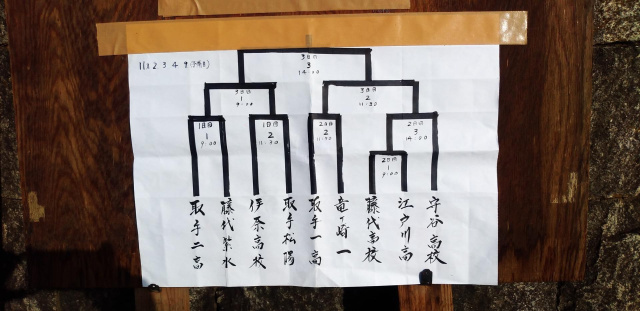 11/1 2 3 4
3日目
3
14:00
3日目
1
9:00
3日目
2
11:30
1日目
1
9:00
1日目
2
11:30
2日目
2
11:30
2日目
3
14:00
2日目
1
9:00
取手二高
藤代紫水
伊奈高校
取手松陽
取手一高
竜ヶ崎一
藤代高校
江戸川高
守谷高校